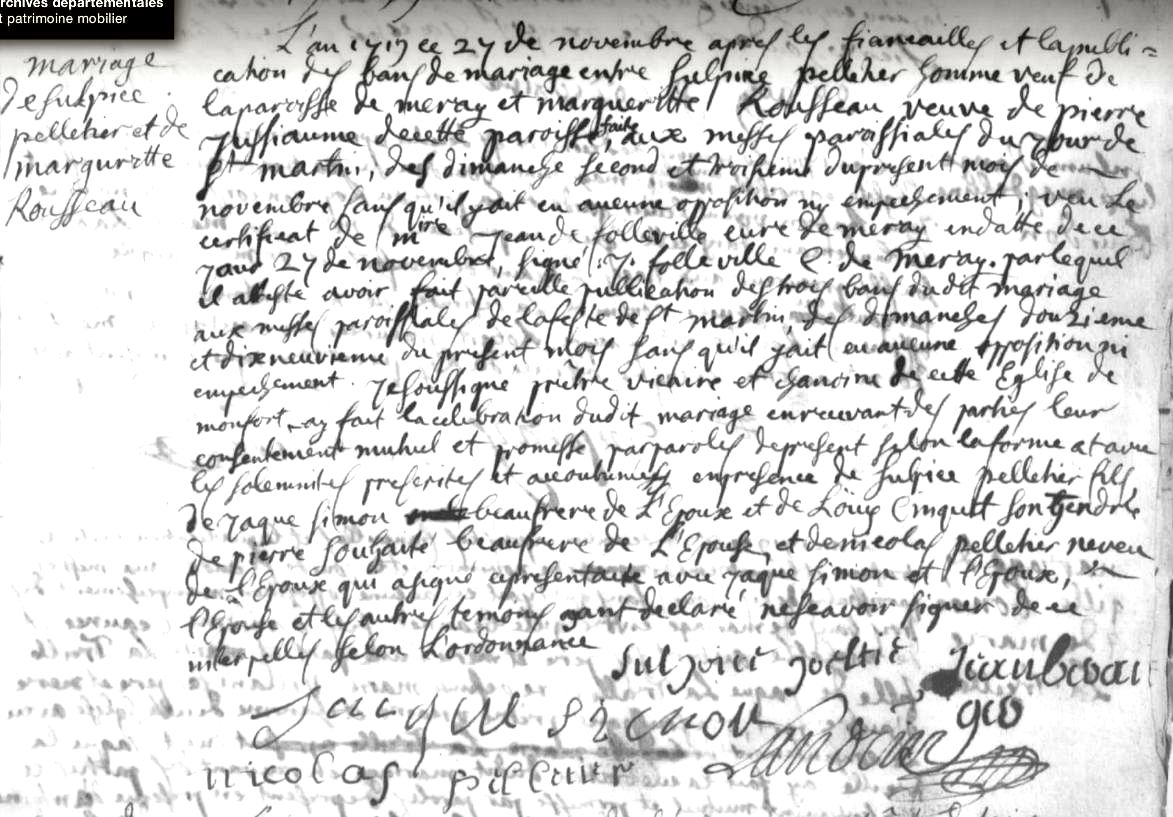 archives départementales
t patrimoine mobilier
mariage
de sulpice
pelletier et de
marguritte
Rousseau
L'an 1717 ce 27 de novembre apres les fiancailles et la publi=
cation des bans de mariage entre sulpice pelletier homme veuf de
la paroisse de meray et margueritte Rousseau veuve de pierre
jussiaume de cette paroisse, faite aux messes paroissiales du jour de
st martin, des dimanche second et troisieme du present mois de
novembre sans qu'il y ait eu aucune opposition ny empechement; veu le
certificat de mire jean de folleville curé de meray en datte de ce
27 de novembre, signé j. folleville c. de meray. par lequel
il ateste avoir fait pareille publication des trois bans dudit mariage
aux messes paroissiales de la feste de st martin, des dimanches douzieme
et dixneuvieme du present mois sans qu'il y ait eu aucune opposition ni
empechement. je soussigné prêtre vicaire et chanoine de cette Eglise de
monfort ay fait la celebration dudit mariage en recevant des parties leur
consentement mutuel et promesse par paroles de present selon la forme et avec
les solemnités prescrites et acoutumées en presence de sulpice pelletier fils
de jaque simon beaufrere de l'Epoux et de Loüis Cinquet son gendre
de pierre souhaité beaufrere de l'Epouse, et de nicolas pelletier neveu
de l'Epoux qui a signé avec jaque simon et l'Epoux,
l'Epouse et les autres temoins ayant declaré ne scavoir signer de ce
interpellés selon l'ordonnance
sulpice
jacque simon
nicolas pelletier